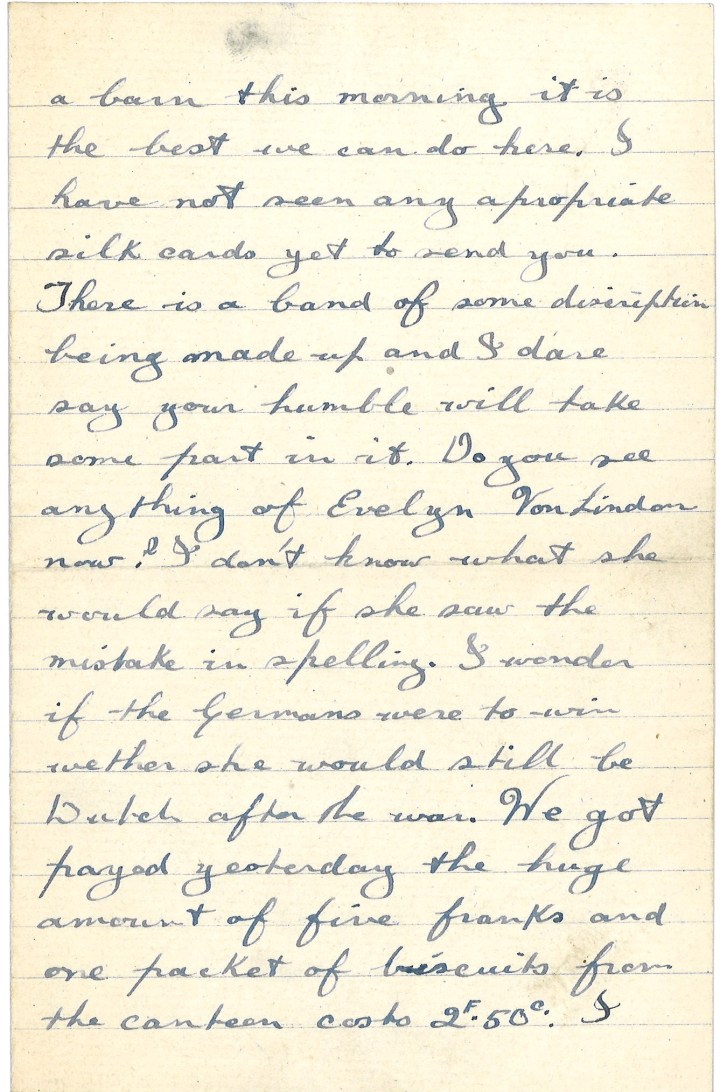 a barn this morning it is
the best we can do here. I
have not seen any apropriate
silk cards yet to send you.
There is a band of some discription
being made up and I dare
say your humble will take
some part in it. Do you see
anything of Evelyn Von Lindon
now? I don't know what she
would say if she saw the
mistake in spelling. I wonder
if the Germans were to win
wether she would still be
Dutch after the war. We got
payed yesterday the huge
amount of five franks and
one packet of biscuits from
the canteen costs 2F.50c. I